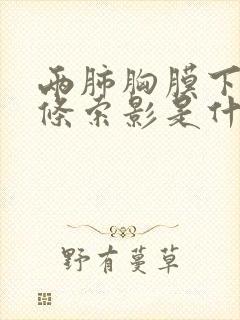 两肺胸膜下
条索影是什
野有蔓草